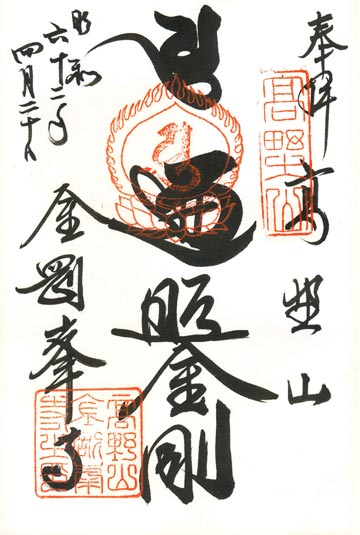 奉拝 高野山
高野山
遍照金剛
昭和
六十二年
四月二十八
金剛峯寺
高野山
金剛峯
寺之印